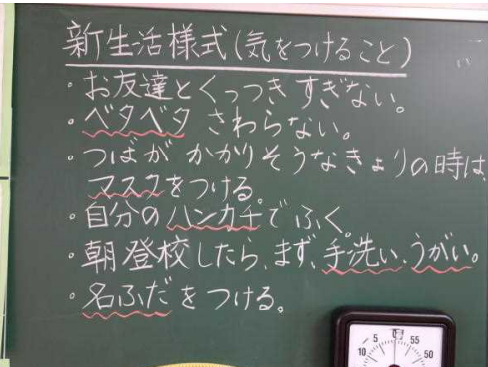 新生活様式(気をつけること)
・お友達とくっつきすぎない。
・ベタベタ さわらない。
・つばが かかりそうなきょりの時は、
マスクをつける。
・自分のハンカチでふく。
・朝登校したら、まず、手洗い、うがい。
・名ふだをつける。
5 55
10 50